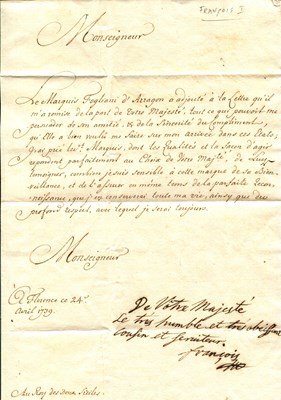 FRANÇOIS I
Monseigneur
Le Marquis Fogliani d'Arragon a adjouté à la Lettre qu'il
m'a remise de la part de Votre Majesté, tout ce qui pouvoit me
persuader de son amitié, et de la Sincerité du Compliment,
qu'Elle a bien voulu me faire sur mon arrivée dans ces Etats,
J'ay prié led.t Marquis, dont les Qualités et la façon d'agir
repondent parfaitement au Choix de Votre Maj.té, de Luy
temoigner, combien je suis sensible à cette marque de sa Bien-
veillance, et de l'assurer en même tems de la parfaite Recon-
noissance, que j'en conserveray toute ma vie, ainsy que du
profond respect, avec lequel je serai toujours.
Monseigneur
A Florence ce 24.e
Avril 1739.
De Votre Majesté
Le très humble et très obeissant
Cousin et serviteur
françois
Au Roy des deux Siciles.